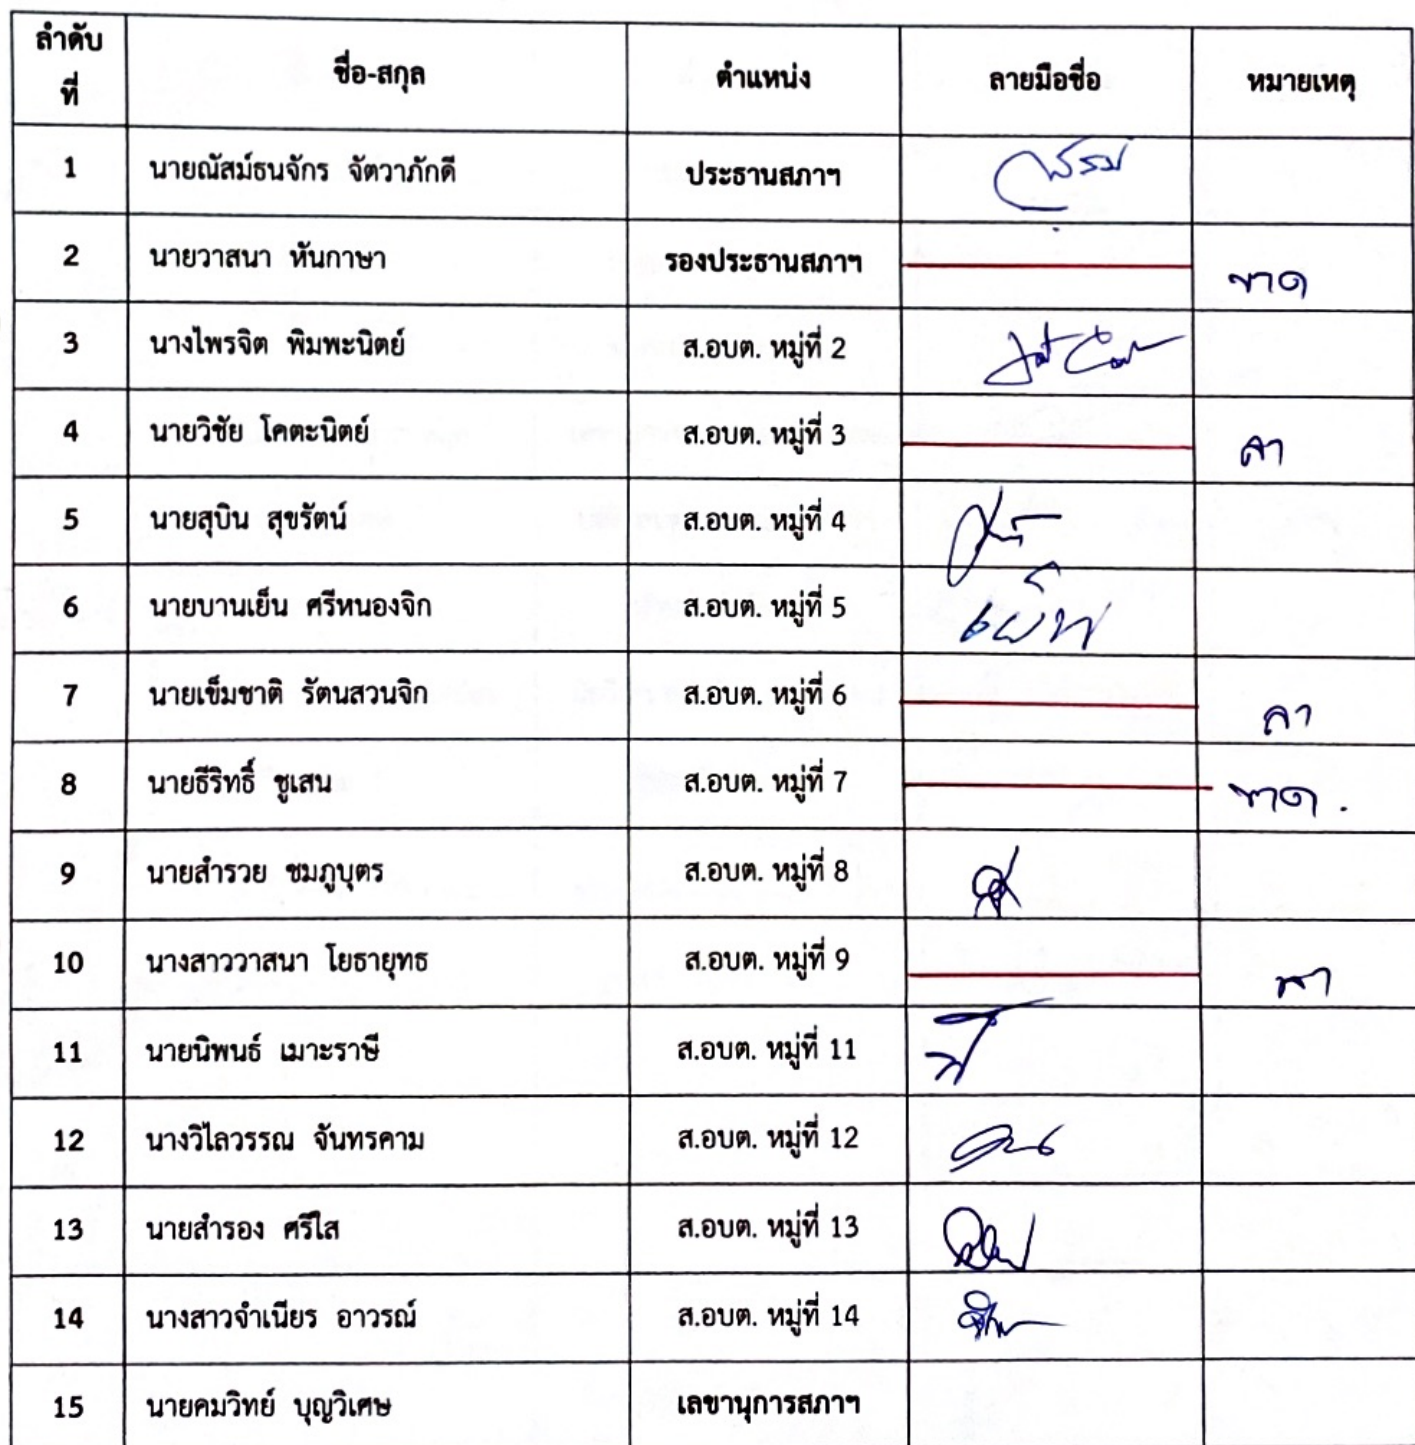 ลำดับที่ ชื่อ-สกุล ตำแหน่ง ลายมือชื่อ หมายเหตุ
1 นายณัสม์ธนจักร จัตวาภักดี ประธานสภาฯ
2 นายวาสนา หันกาษา รองประธานสภาฯ ขาด
3 นางไพรจิต พิมพะนิตย์ ส.อบต. หมู่ที่ 2
4 นายวิชัย โคตะนิตย์ ส.อบต. หมู่ที่ 3 ลา
5 นายสุบิน สุขรัตน์ ส.อบต. หมู่ที่ 4
6 นายบานเย็น ศรีหนองจิก ส.อบต. หมู่ที่ 5 เย็น
7 นายเข็มชาติ รัตนสวนจิก ส.อบต. หมู่ที่ 6 ลา
8 นายธีริทธิ์ ชูเสน ส.อบต. หมู่ที่ 7 ขาด.
9 นายสำรวย ชมภูบุตร ส.อบต. หมู่ที่ 8
10 นางสาววาสนา โยธายุทธ ส.อบต. หมู่ที่ 9 ลา
11 นายนิพนธ์ เมาะราษี ส.อบต. หมู่ที่ 11
12 นางวิไลวรรณ จันทรคาม ส.อบต. หมู่ที่ 12
13 นายสำรอง ศรีใส ส.อบต. หมู่ที่ 13
14 นางสาวจำเนียร อาวรณ์ ส.อบต. หมู่ที่ 14
15 นายคมวิทย์ บุญวิเศษ เลขานุการสภาฯ